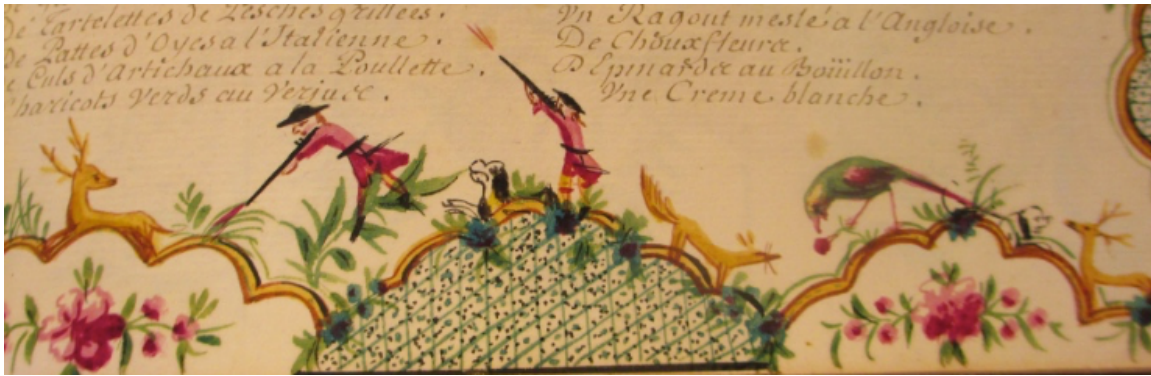 De Tartelettes de Pesches grillées.
de Pattes d'Oyes a l'Italienne.
Culs d'Artichaux a la Poullette.
haricots verds au Verjuce.
Vn Ragout meslé a l'Angloise.
De Chouxfleurce.
D'Epinardce au Boüillon.
Vne Creme blanche.